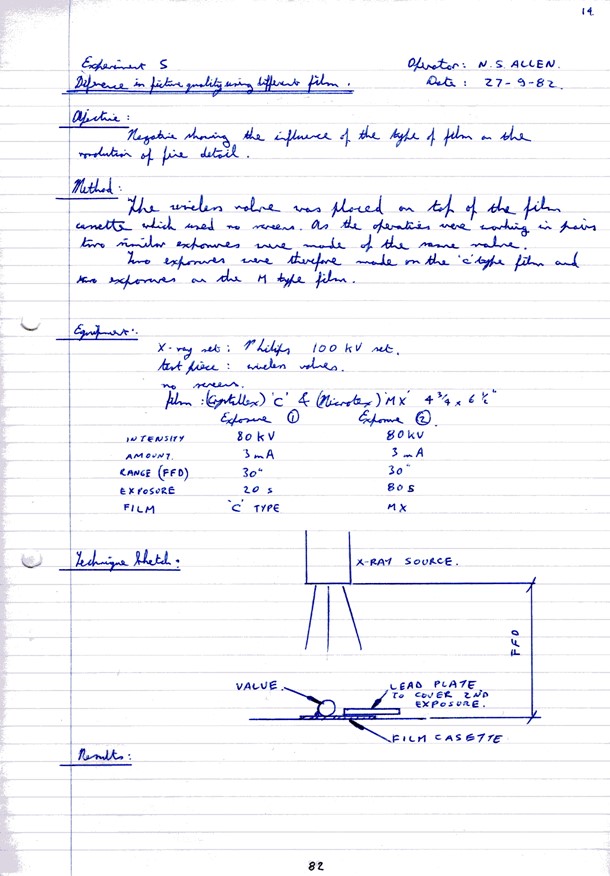 14
Experiment 5 Operator: N.S. ALLEN.
Diference in picture quality using different film. Date: 27-9-82.
Objective:
Negative showing the influence of the type of film on the
resolution of fine detail.
Method:
The wireless valve was placed on top of the film
cassette which used no screens. As the operaties were working in pairs
two similar exposures were made of the same valve.
Two exposures were therefore made on the 'C' type film and
two exposures on the M type film.
Equipment:
X-ray set: Philips 100 kV set.
test piece: wireless valves.
no screens.
film: (Crystallex) 'C' & (Microtex) 'MX' 4 3/4 x 6 1/2"
Exposure ① Exposure ②.
INTENSITY 80 kV 80 kV
AMOUNT. 3 mA 3 mA
RANGE (FFD) 30" 30"
EXPOSURE 20 s 80 s
FILM 'C' TYPE MX
Technique Sketch:
X-RAY SOURCE.
FFD
VALUE.
LEAD PLATE
TO COVER 2ND
EXPOSURE.
FILM CASETTE
Results:
82